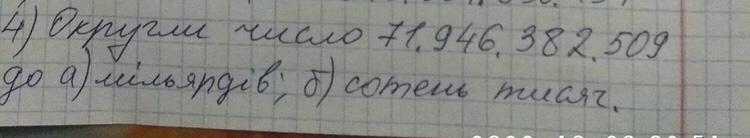 4) Округли число 71.946.382.509
до а) мільярдів; б) сотень тисяч.